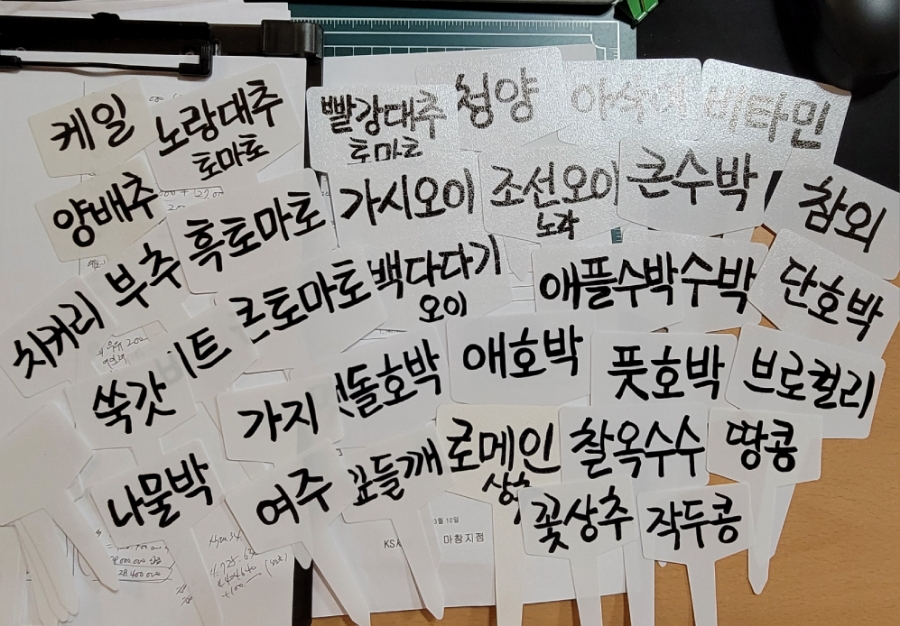 케일
노랑대추
토마토
빨강대추
토마토
청양
비타민
양배추
흑토마토
가시오이
조선오이
노각
큰수박
참외
치커리
부추
큰토마토
백다다기
오이
애플수박
수박
단호박
쑥갓
비트
가지
맷돌호박
애호박
풋호박
브로컬리
나물박
여주
잎들깨
로메인
상추
찰옥수수
땅콩
꽃상추
작두콩
3월 10일
마창지점